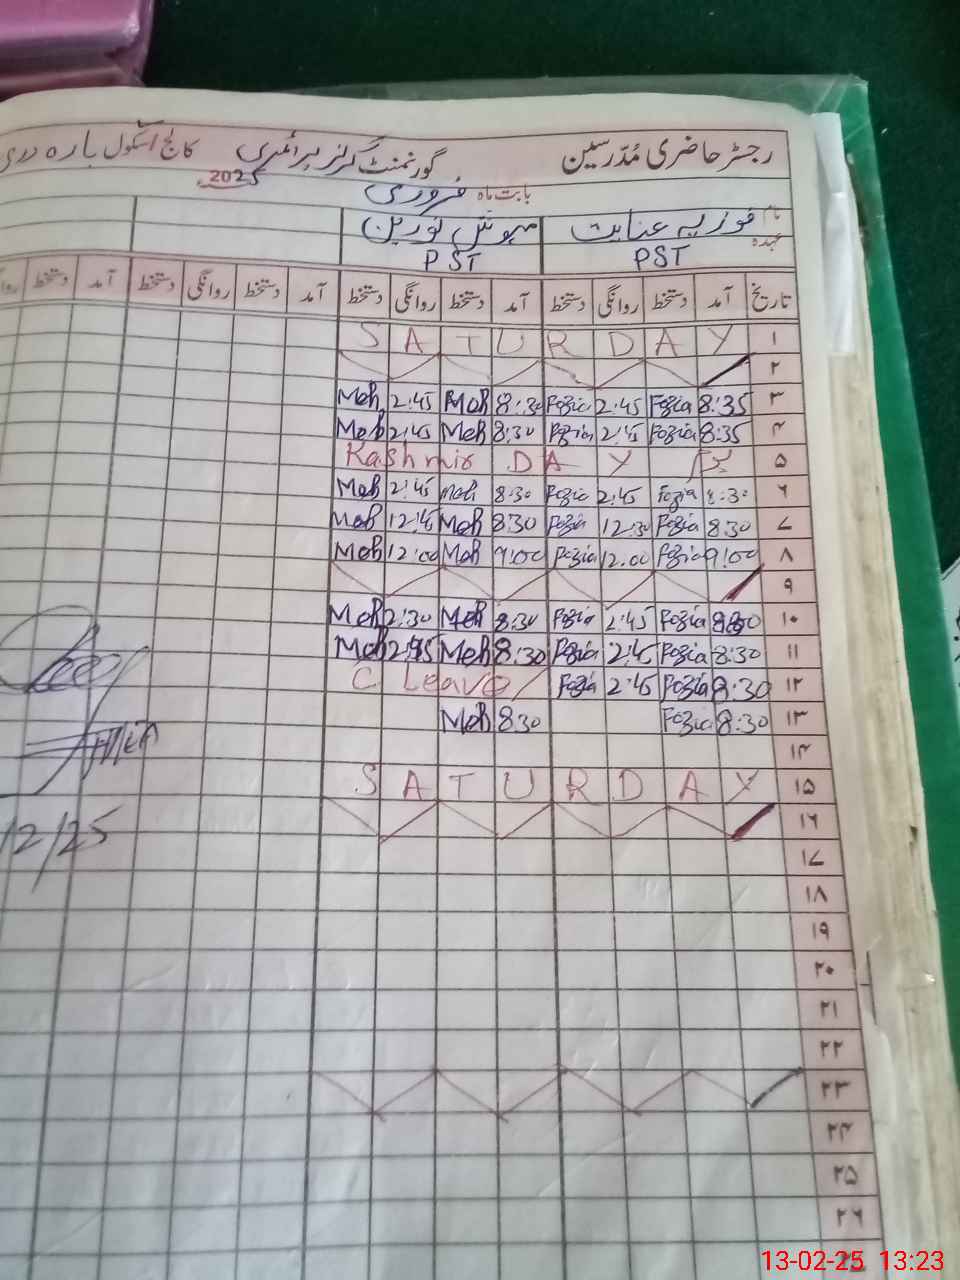 رجسٹر حاضری مُدّرسین گورنمنٹ گرلز پرائمری کالج اسکول بارہ دری
بابت ماہ فروری 2025
نام فوزیہ عنایت مہوش نورین
عہدہ PST PST
تاریخ آمد دستخط روانگی دستخط آمد دستخط روانگی دستخط آمد دستخط روانگی دستخط آمد دستخط
۱ S A T U R D A Y
۲
۳ 8:35 Fozia 2:45 Fozia 8:30 Meh 2:45 Meh
۴ 8:35 Fozia 2:45 Fozia 8:30 Meh 2:45 Meh
۵ Kashmir D A Y
۶ 8:30 Fozia 2:45 Fozia 8:30 Meh 2:45 Meh
۷ 8:30 Fozia 12:30 Fozia 8:30 Meh 12:15 Meh
۸ 9:00 Fozia 12:00 Fozia 9:00 Meh 12:00 Meh
۹
۱۰ Fozia 2:45 Fozia 8:30 Meh 2:30 Meh
۱۱ 8:30 Fozia 2:45 Fozia 8:30 Meh Meh
۱۲ 8:30 Fozia 2:45 Fozia C Leave
۱۳ 8:30 Fozia 8:30 Meh
۱۴
۱۵ S A T U R D A Y
۱۶
/2/25
۱۷
۱۸
۱۹
۲۰
۲۱
۲۲
۲۳
۲۴
۲۵
۲۶
13-02-25 13:23